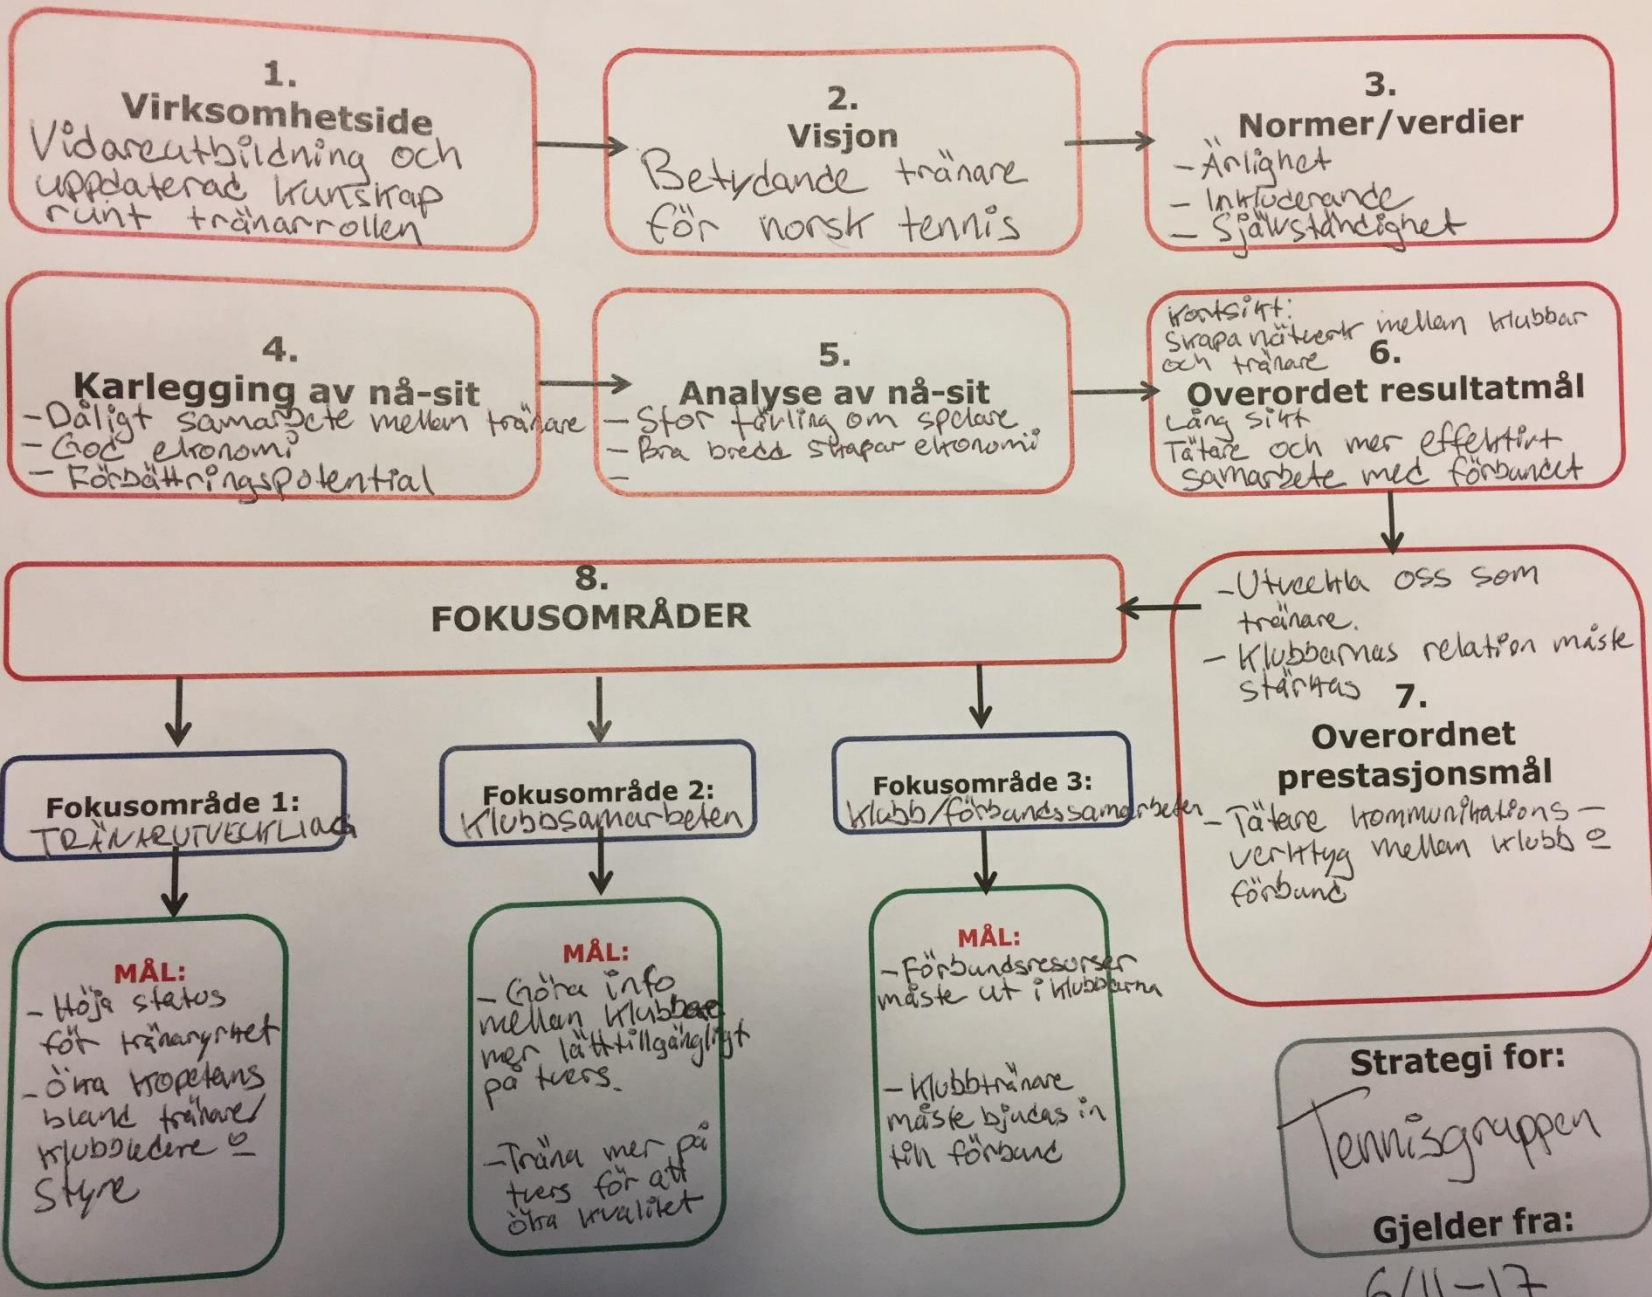 1.
Virksomhetside
Vidareutbildning och
uppdaterad kunskap
runt tränarrollen
2.
Visjon
Betydande tränare
för norsk tennis
3.
Normer/verdier
- Ärlighet
- Inkluderande
- Självständighet
4.
Karlegging av nå-sit
- Dåligt samarbete mellan tränare
- God ekonomi
- Förbättringspotential
5.
Analyse av nå-sit
- Stor tävling om spelare
- Bra bredd skapar ekonomi
-
Kortsikt:
Skapa nätverk mellan klubbar
och tränare
6.
Overordet resultatmål
Lång sikt
Tätare och mer effektivt
samarbete med förbundet
- Utveckla oss som
tränare.
- Klubbarnas relation måste
stärkas
7.
Overordnet
prestasjonsmål
- Tätare kommunikations-
verktyg mellan klubb o
förbund
8.
FOKUSOMRÅDER
Fokusområde 1:
TRÄNARUTVECKLING
Fokusområde 2:
Klubbsamarbeten
Fokusområde 3:
Klubb/förbundssamarbeten
MÅL:
- Höja status
för tränaryrket
- Öka kopetans
bland tränare/
klubbledere o
Styre
MÅL:
- Göra info
mellan klubbar
mer lättillgängligt
på tvers.
- Träna mer på
tvers för att
öka kvalitet
MÅL:
- Förbundsresurser
måste ut i klubbarna
- Klubbtränare
måste bjudas in
till förbund
Strategi for:
Tennisgruppen
Gjelder fra:
6/11-17